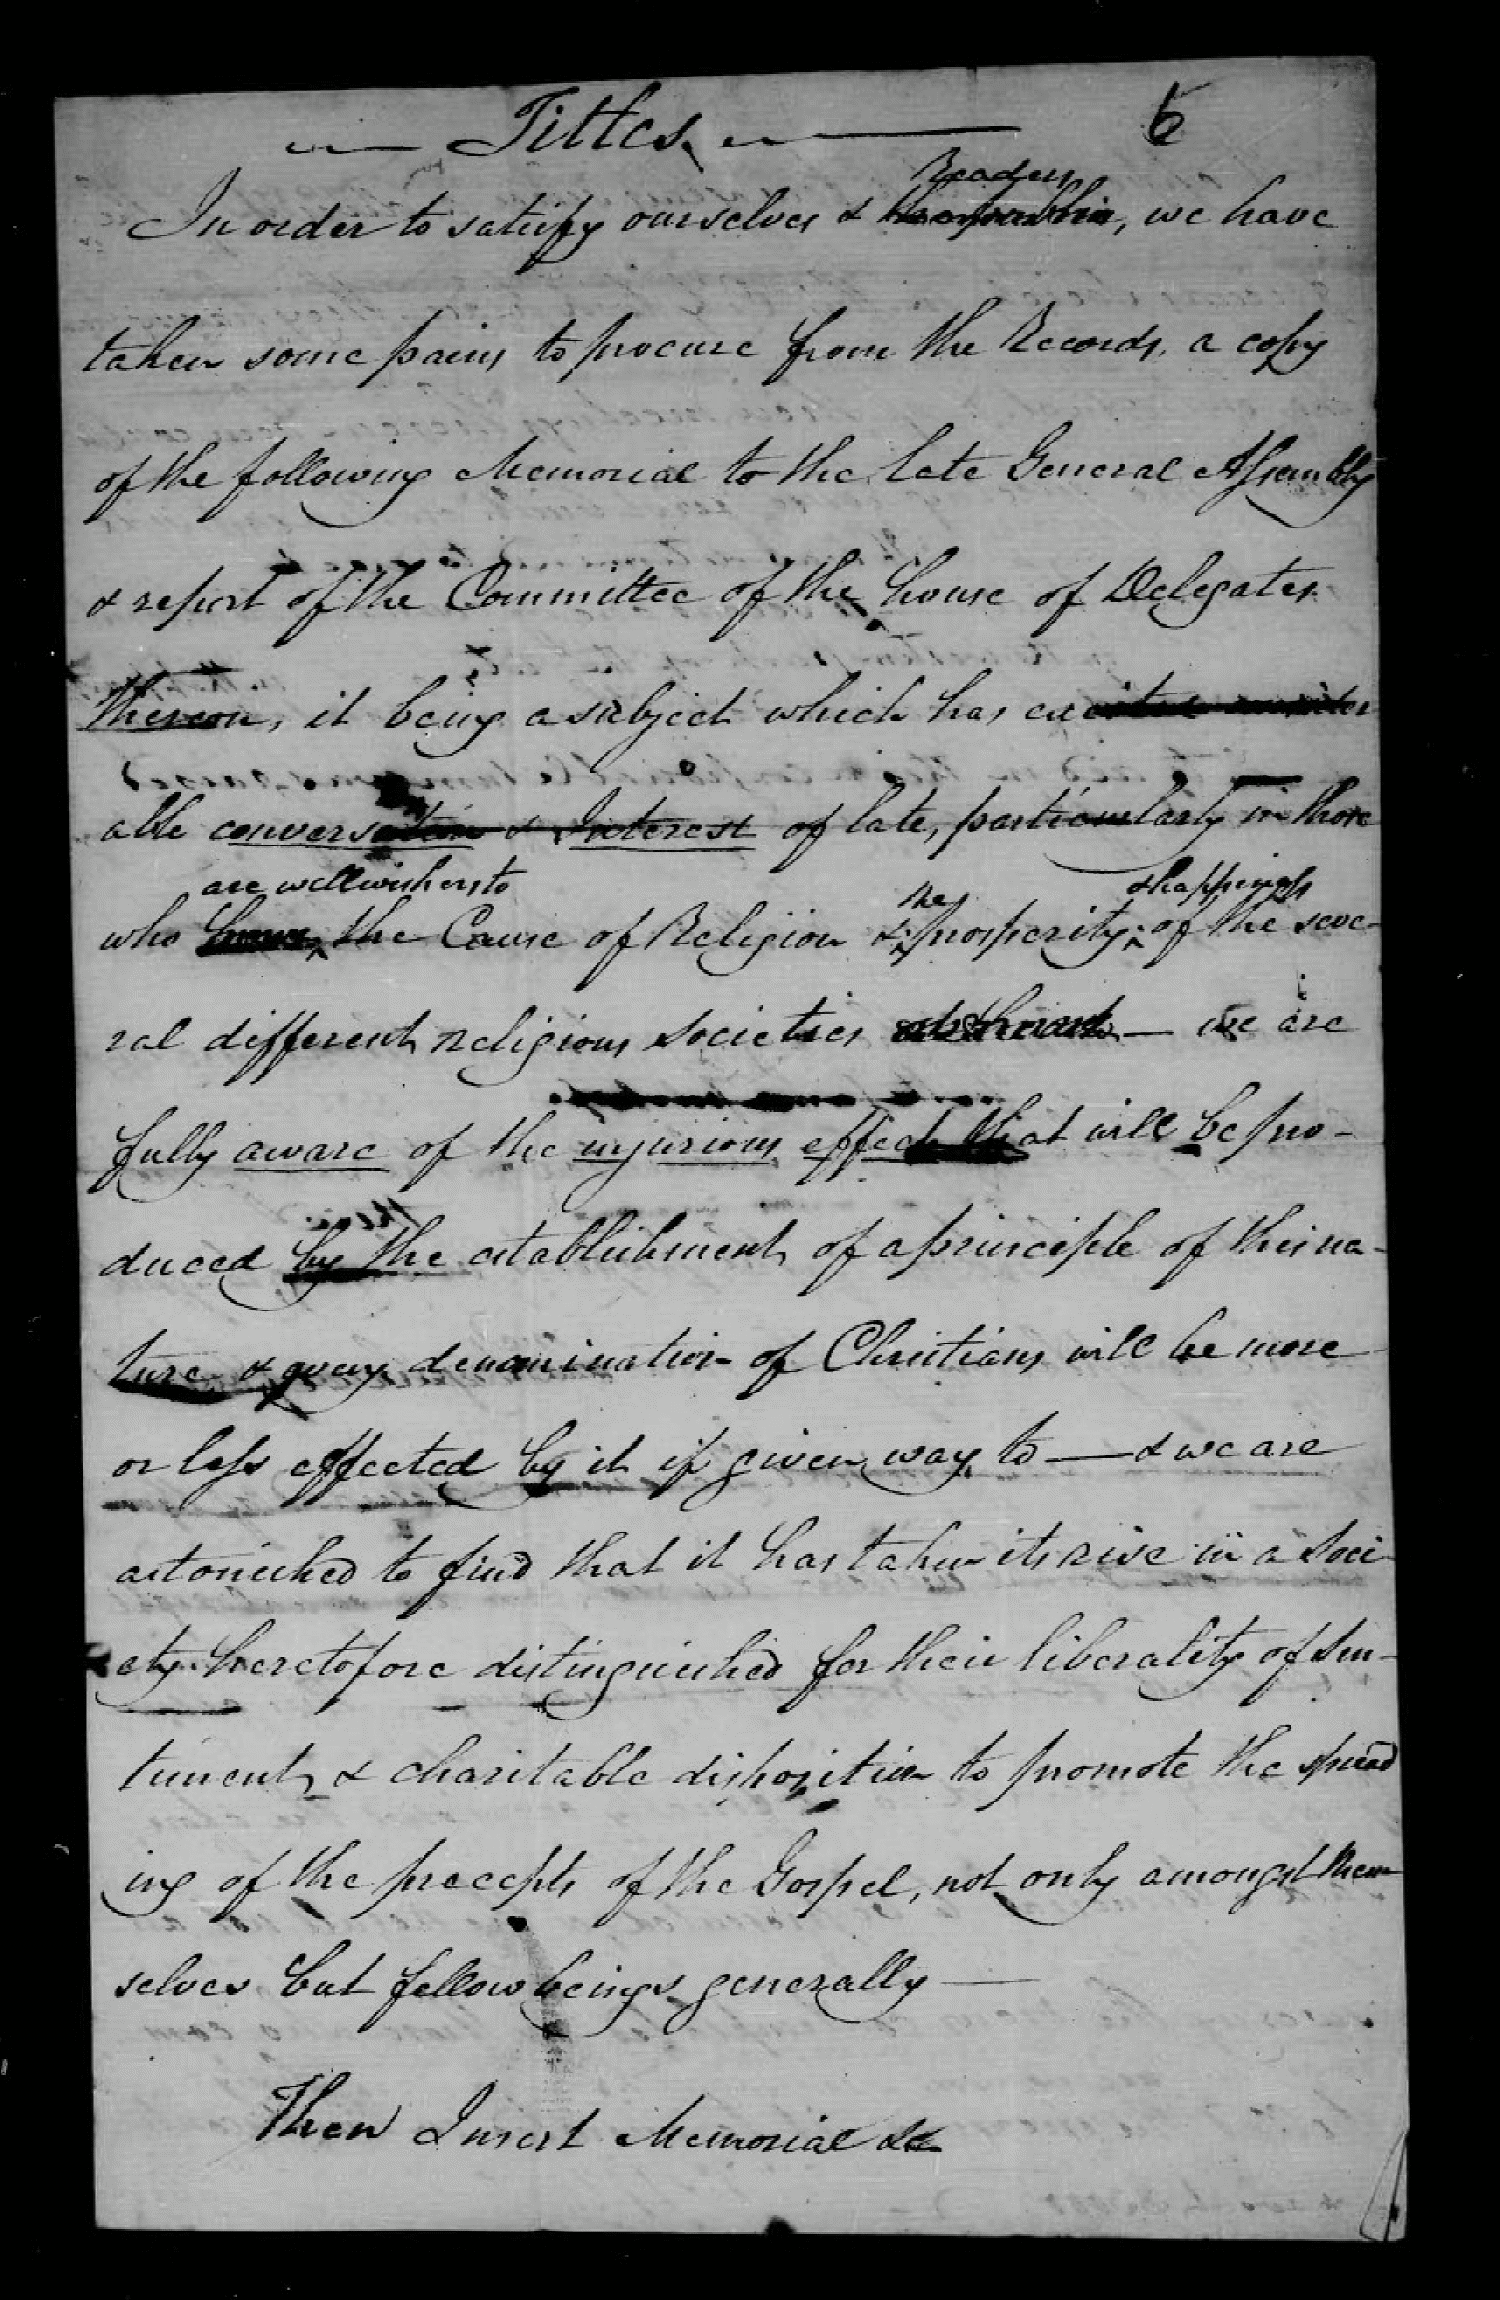 Titles
Readers
In order to satisfy ourselves & , we have
taken some pains to procure from the Records, a copy
of the following Memorial to the late General Assembly
& report of the Committee of the house of Delegates
thereon, it being a subject which has excited consider
able conversation & Interest of late, particularly in those
are wellwishers to the & happiness
who the Cause of Religion & prosperity of the seve-
ral different religious societies — we are
fully aware of the injurious effect that will be pro-
duced by the establishment of a principle of this na-
ture & every denomination of Christians will be more
or less effected by it if given way to — & we are
astonished to find that it has taken its rise in a Soci
ety heretofore distinguished for their liberality of sen-
timent & charitable disposition to promote the spread
ing of the precepts of the Gospel, not only amongst them
selves but fellow beings generally —
Then Insert Memorial &c